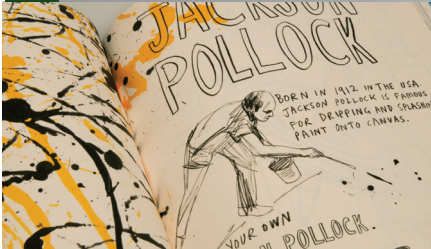 JACKSON
POLLOCK
BORN IN 1912 IN THE USA
JACKSON POLLOCK IS FAMOUS
FOR DRIPPING AND SPLASHING
PAINT ONTO CANVAS.
YOUR OWN
POLLOCK.